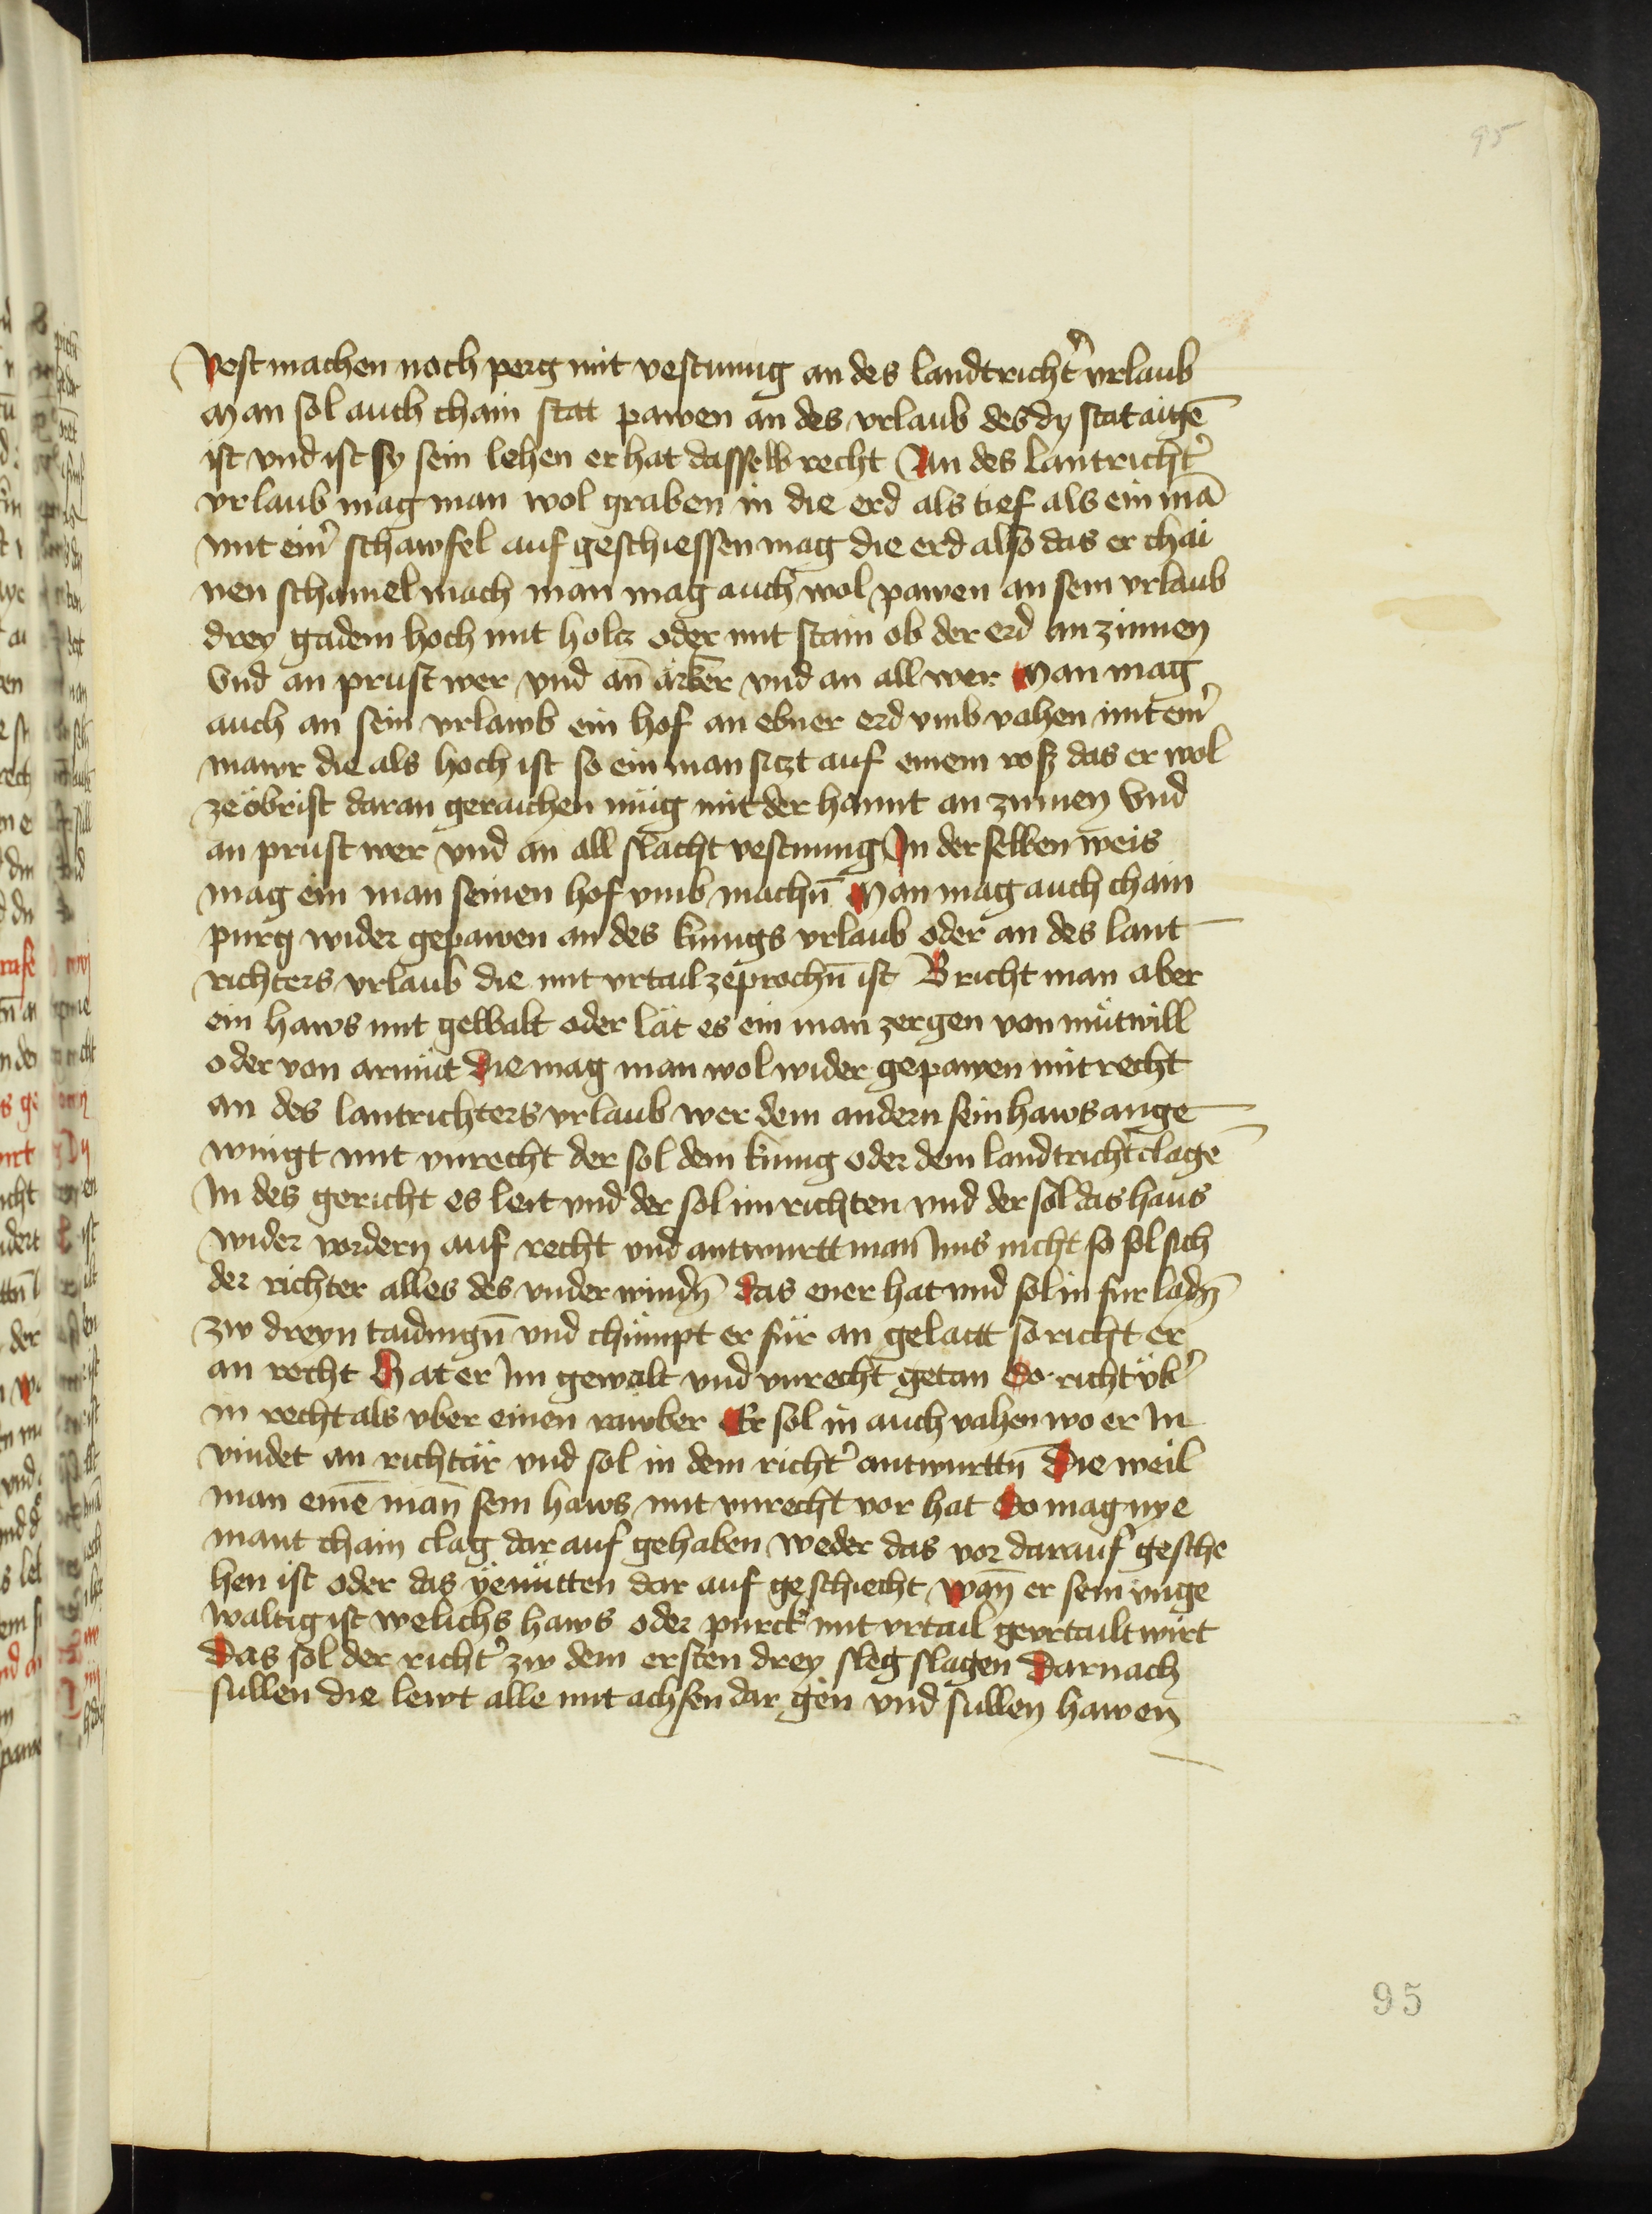 95
Vest machen noch perg mit vestnung an des landtricht̉ vrlaub
Man sol auch chain stat pawen an des vrlaub des dy stat aigē
ist vnd ist sy sein lehen er hat dasselb recht An des lantricht̉
vrlaub mag man wol graben in die erd als tief als ein mā
mit ein̉ schawfel auf geschiessen mag die erd also das er chai
nen schamel mach man mag auch wol pawen an sein vrlaub
drey gadem hoch mit holcz oder mit stain ob der erd an zinnen
Vnd an prustwer vnd an̄ ärker vnd an all wer Man mag
auch an sein vrlawb ein hof an ebner erd vmb vahen mit ein̉
mawr die als hoch ist so ein man siczt auf einem rosz das er wol
zeöbrist daran geraichen müg mit der hannt an zinnen Vnd
an prustwer vnd an all slacht vestnung In der selben weis
mag ein man seinen hof vmb machn̄ Man mag auch chain
purg wider gepawen an des kunigs vrlaub oder an des lant
richters vrlaub die mit vrtail zeprochn̄ ist Bricht man aber
ein haws mit gewalt oder lät es ein man zergen von mütwill
oder von armüt die mag man wol wider gepawen mit recht
an des lantrichters vrlaub wer dem andern sein haws ange
wingt mit vnrecht der sol dem kunig oder dem landtricht̉ clagē
In des gericht es leit vnd der sol im richten vnd der sol das haus
wider vordern auf recht vnd antwurtt man Ims nicht so sol sich
der richter alles des vnderwindn̄ das ener hat vnd sol in fur ladn̄
zw dreyn taidingn̄ vnd chümpt er für an gelaitt so richt er
an recht Hat er Im gewalt vnd vnrecht getan So richt vb̉
in recht als vber einen rawber Er sol in auch vahen wo er In
vindet an richtär vnd sol in dem richt̉ antwurttn̄ Die weil
man einē man̄ sein haws mit vnrecht vor hat So mag nye
mant chain clag dar auf gehaben weder das vor darauf gesche
hen ist oder das yenütten dar auf geschiecht wan̄ er sein vnge
waltig ist welichs haws oder purck mit vrtail gevrtailt wirt
Das sol der richt̉ zw dem ersten drey sleg slagen Darnach
sullen die lewt alle mit achsen dar gen vnd sullen hawen
95